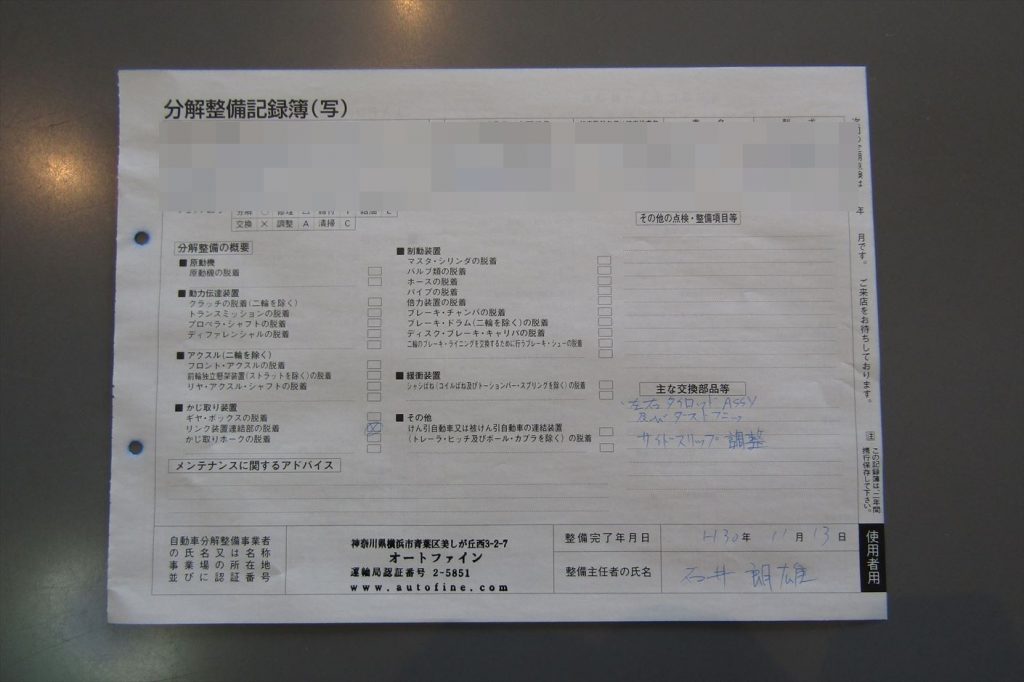 分解整備記録簿(写)
交換 × 調整 A 清掃 C
その他の点検・整備項目等
分解整備の概要
■ 原動機
原動機の脱着
■ 動力伝達装置
クラッチの脱着(二輪を除く)
トランスミッションの脱着
プロペラ・シャフトの脱着
ディファレンシャルの脱着
■ アクスル(二輪を除く)
フロント・アクスルの脱着
前輪独立懸架装置(ストラットを除く)の脱着
リヤ・アクスル・シャフトの脱着
■ かじ取り装置
ギヤ・ボックスの脱着
リンク装置連結部の脱着
かじ取りホークの脱着
■ 制動装置
マスタ・シリンダの脱着
バルブ類の脱着
ホースの脱着
パイプの脱着
倍力装置の脱着
ブレーキ・チャンバの脱着
ブレーキ・ドラム(二輪を除く)の脱着
ディスク・ブレーキ・キャリパの脱着
二輪のブレーキ・ライニングを交換するために行うブレーキ・シューの脱着
■ 緩衝装置
シャシばね(コイルばね及びトーションバー・スプリングを除く)の脱着
■ その他
けん引自動車又は被けん引自動車の連結装置
(トレーラ・ヒッチ及びボール・カプラを除く)の脱着
主な交換部品等
左右タイロッド ASSY
及び ダーストブーツ
サイドスリップ 調整
メンテナンスに関するアドバイス
自動車分解整備事業者
の氏名又は名称
事業場の所在地
並びに認証番号
神奈川県横浜市青葉区美しが丘西3-2-7
オートファイン
運輸局認証番号 2-5851
www.autofine.com
整備完了年月日 H30年 11月 13日
整備主任者の氏名 石井 朗雄
年 月です。 ご来店をお待ちしております。
注 この記録簿は、二年間
携行保存して下さい。
使用者用